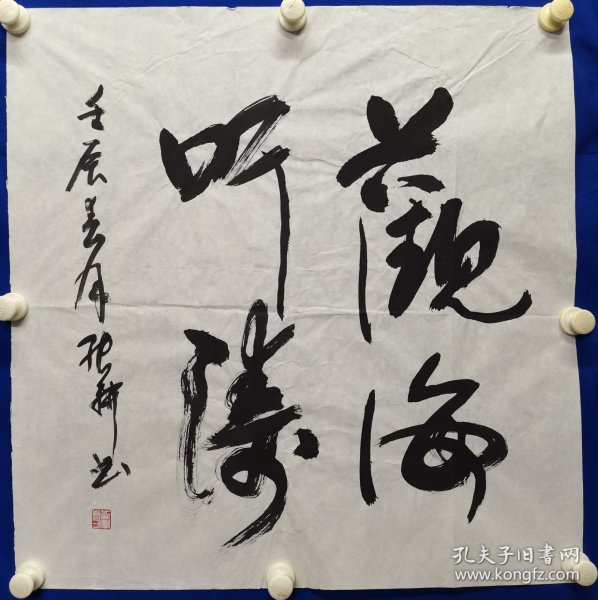 觀海
听濤
壬辰春月張耕书
孔夫子旧書网
www.kongfz.com